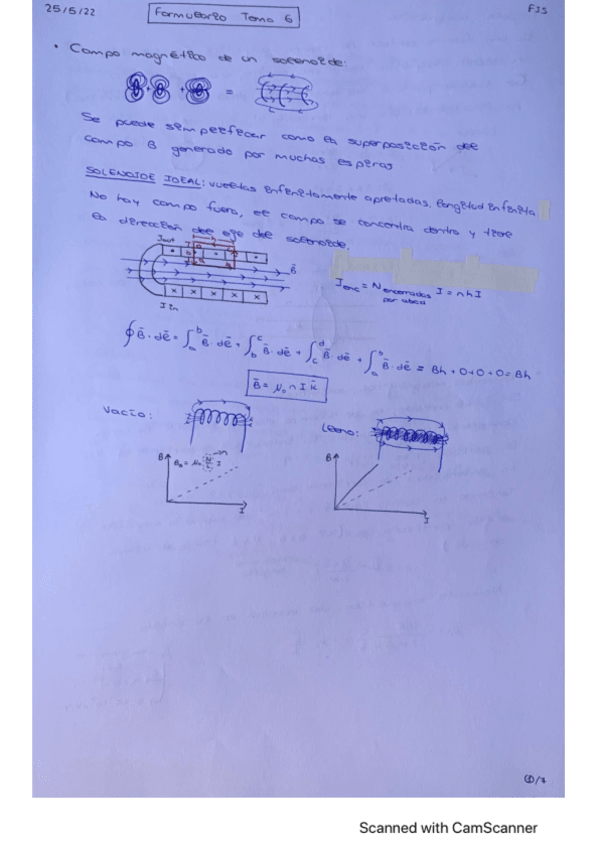 25/5/22
Formulario Tema 6
FIS
• Campo magnético de un solenoide:
+ + =
Se puede simplificar como la superposición del
campo B generado por muchas espiras
SOLENOIDE IDEAL: vueltas infinitamente apretadas, longitud infinita
No hay campo fuera, el campo se concentra dentro y tiene
la dirección del eje del solenoide.
I out
B⃗
I in
I enc = N encerradas por abcd I = n h I
∮ B̄ · dℓ̄ = ∫ₐᵇ B̄ · dℓ̄ + ∫_b^c B̄ · dℓ̄ + ∫_c^d B̄ · dℓ̄ + ∫ B̄ · dℓ̄ = Bh + 0 + 0 + 0 = Bh
B̄ = μ₀ n I k̄
Vacío:
Lleno:
B
B₀ = μ₀ I
I
B
I
①/7
Scanned with CamScanner